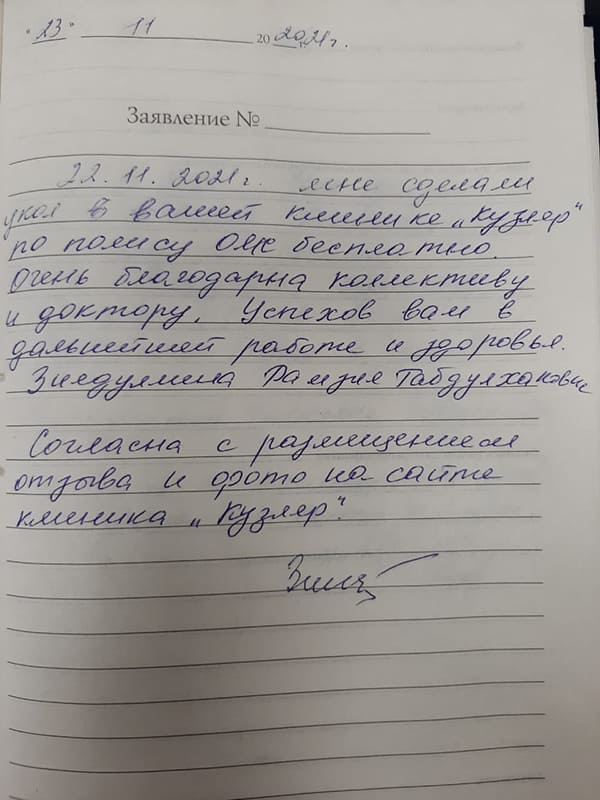 "23" 11 20 2021г.
Заявление №
22.11.2021г. мне сделали
укол в вашей клинике „Кузляр"
по полису ОМС бесплатно.
Очень благодарна коллективу
и доктору. Успехов вам в
дальнейшей работе и здоровья.
Рамзия Габдулхаковна
Согласна с размещением
отзыва и фото на сайте
клиника „Кузляр".